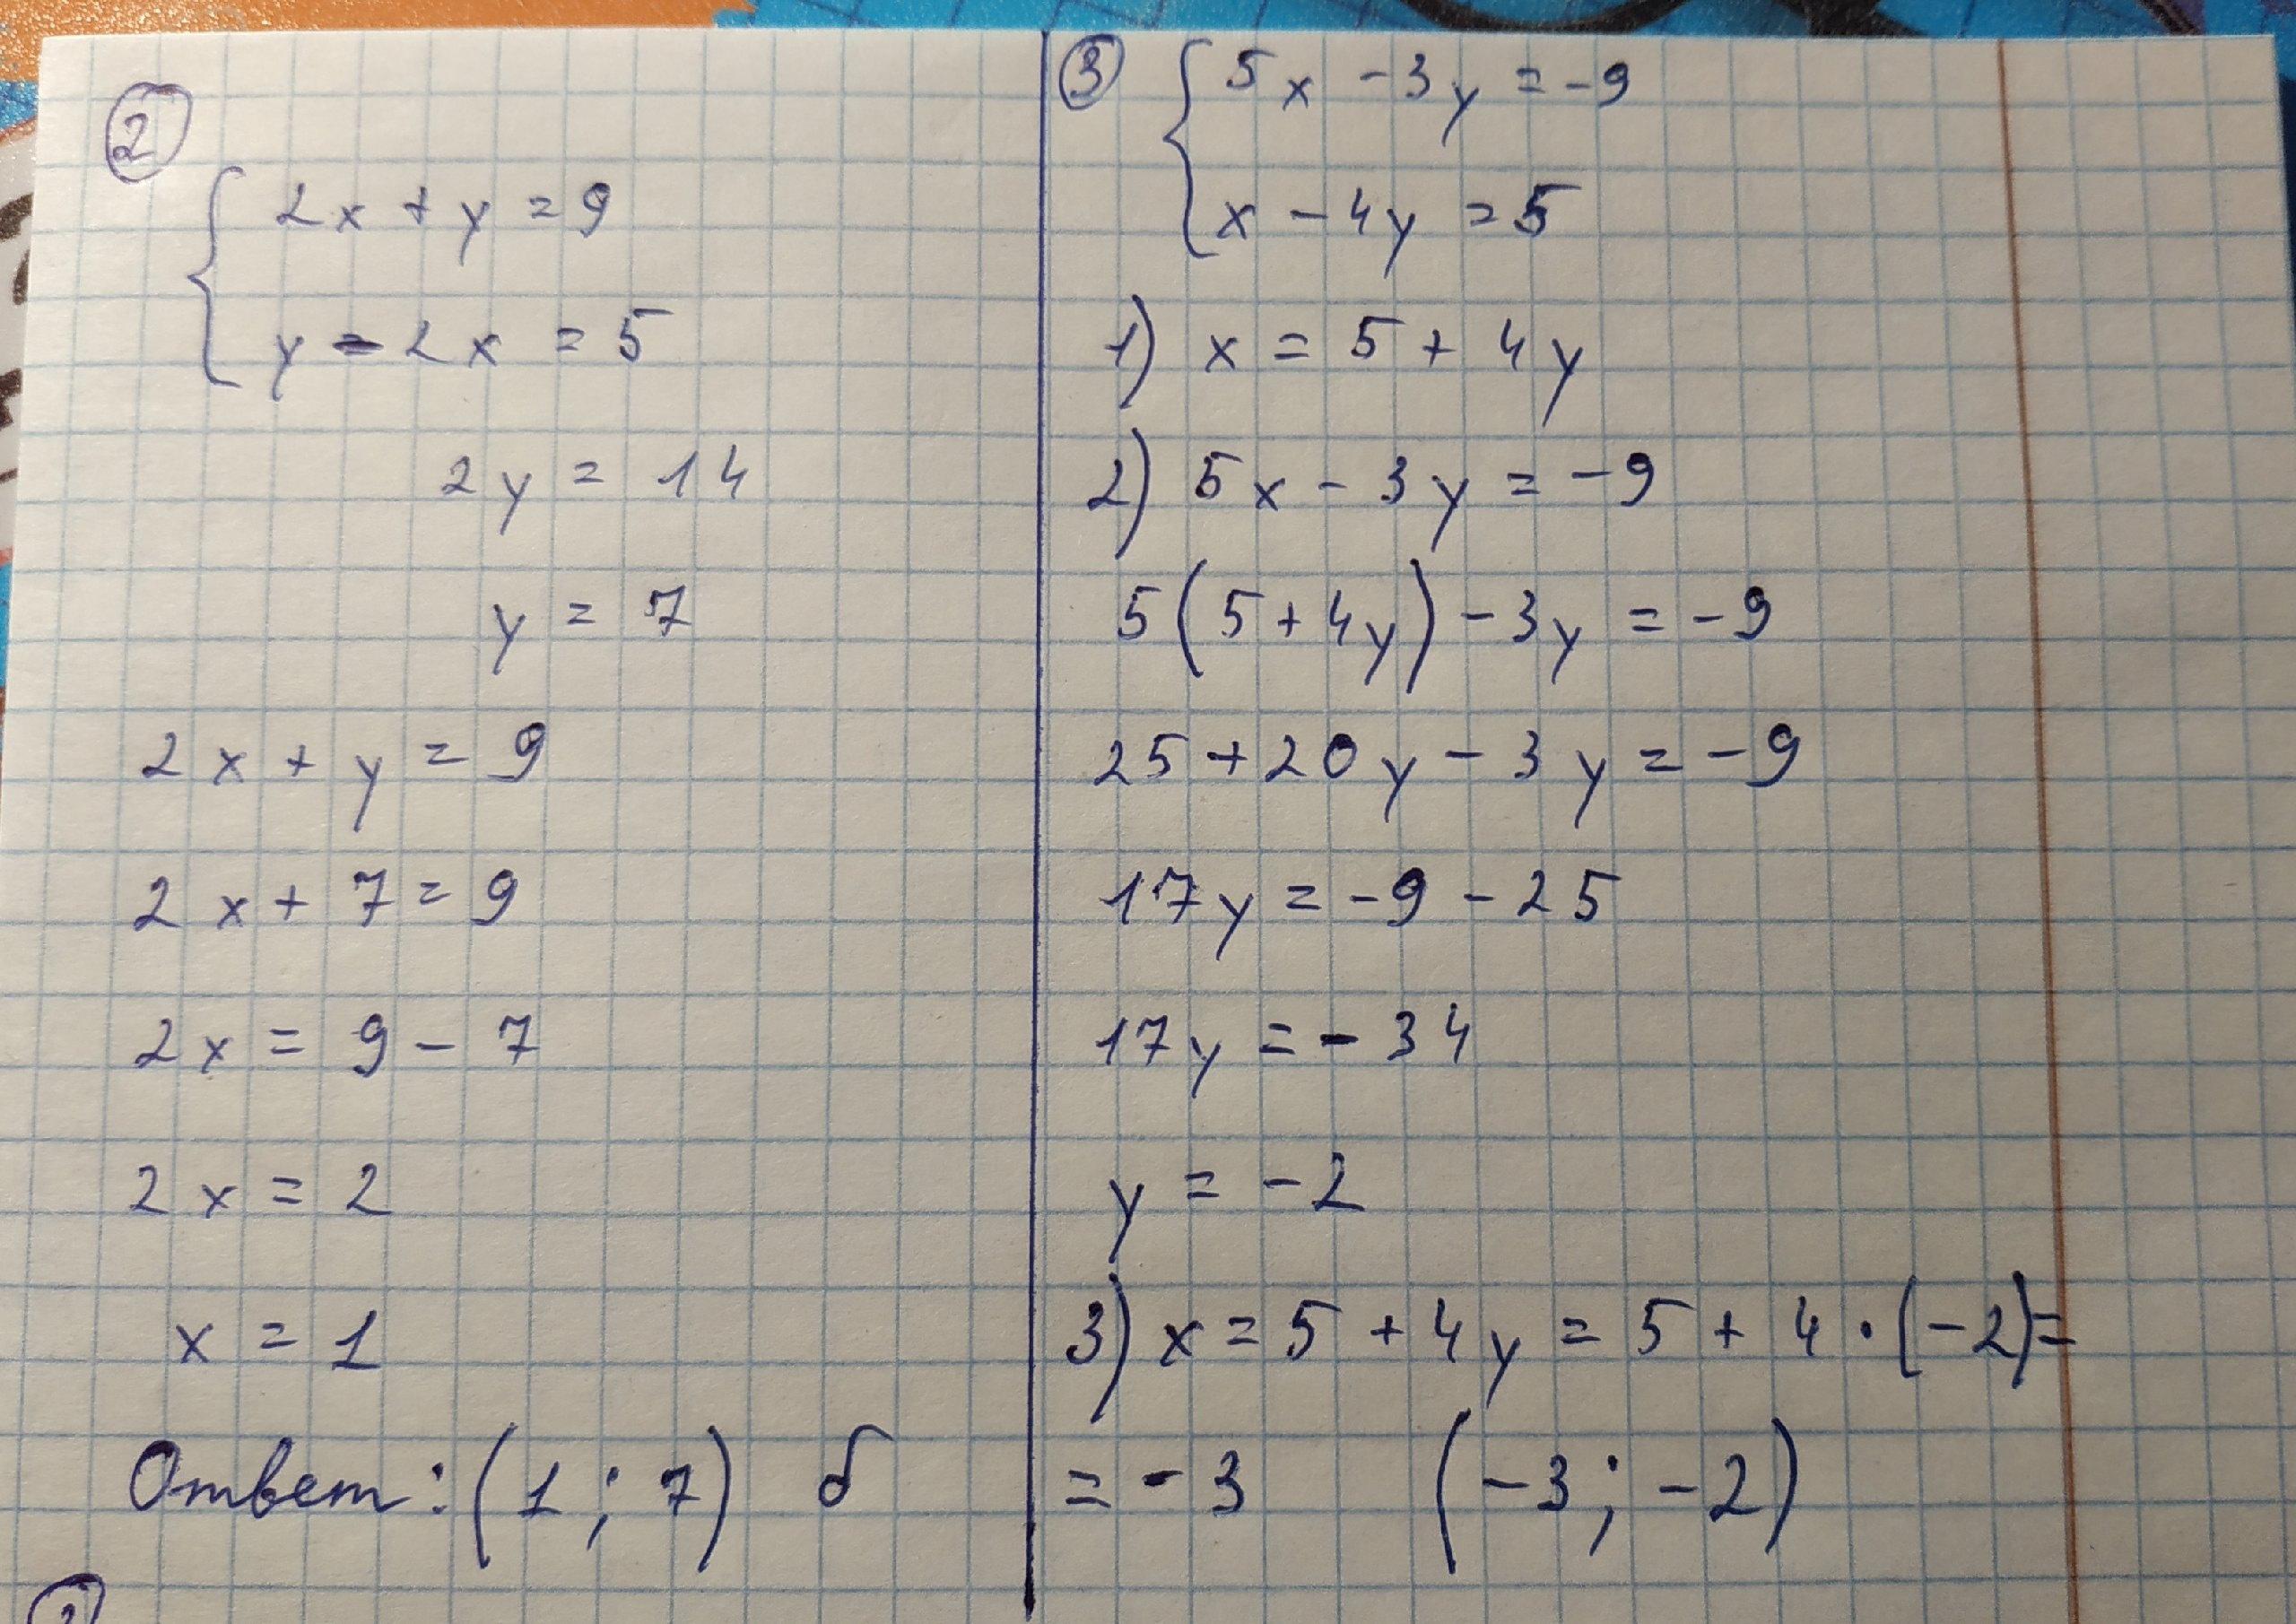 2
2x + y = 9
y - 2x = 5
2y = 14
y = 7
2x + y = 9
2x + 7 = 9
2x = 9 - 7
2x = 2
x = 1
Ответ: (1 ; 7) б
3
5x - 3y = -9
x - 4y = 5
1) x = 5 + 4y
2) 5x - 3y = -9
5(5 + 4y) - 3y = -9
25 + 20y - 3y = -9
17y = -9 - 25
17y = - 34
y = -2
3) x = 5 + 4y = 5 + 4 · (-2) =
= - 3 (-3 ; -2)